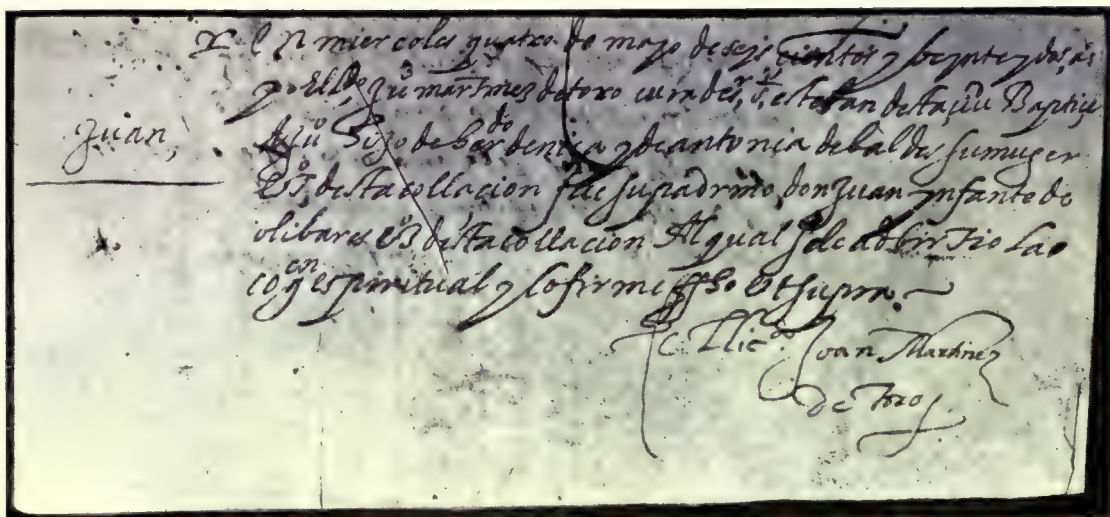 En miercoles quatro de mayo de seys cientos y beynte y dos, as
yo El ldo Ju martinez de toro cura de sr st esteban de seva Baptize
Juan,
a Ju hijo de bdo dentica y de antonia de baldes su muger
vos desta collacion fue su padrino don Juan ynfante de
olibares vo desta collacion Al qual se le adbirtio la
cogcon espiritual y lo firme ffho Ut supra.
El Licdo Joan Martinez
de Toro